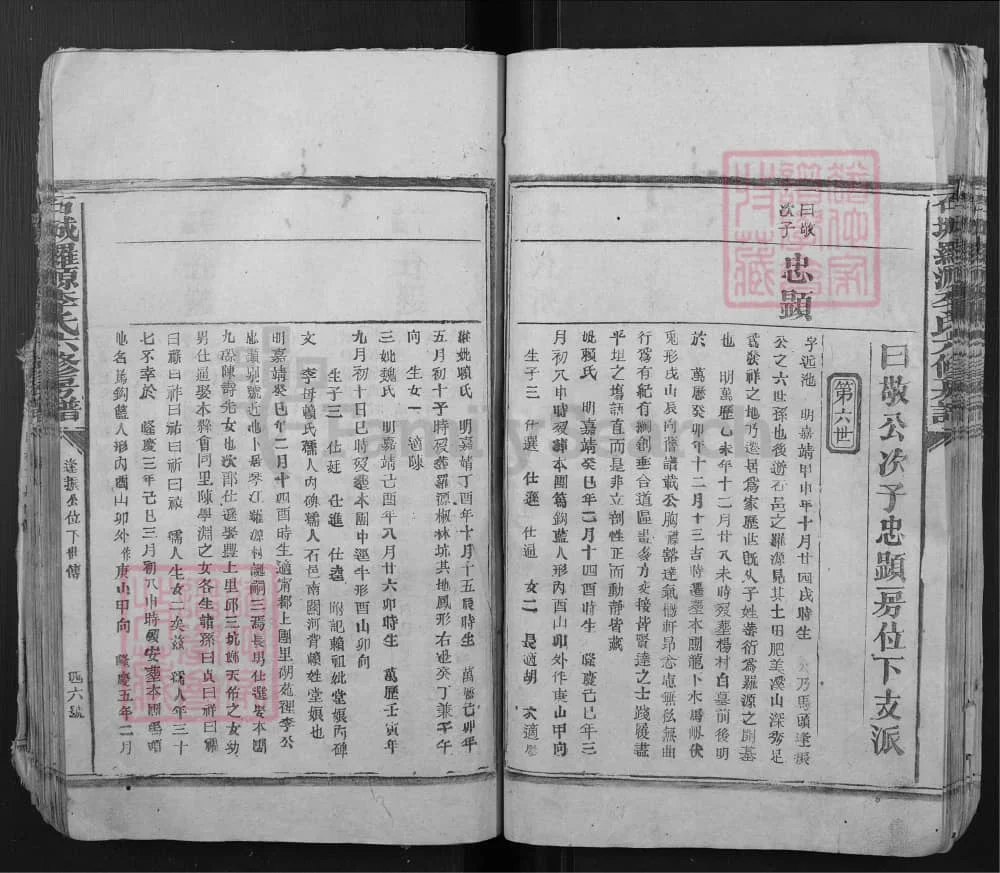 石城羅源李氏六修房譜
曰敬公次子忠顯房位下支派
第六世
曰敬次子
忠顯
字近池 明嘉靖甲申年十月廿四戌時生 公乃馬頭逢振
公之六世孫也後遊石邑之羅源見其土田肥美溪山深秀足
爲發祥之地乃遷居爲家歷世既久子姓蕃衍爲羅源之開基
也 明萬歷乙未年十二月廿八未時歿塟楊村自墓前後明
於 萬歷癸卯年十二月十三吉時遷塟本團龍卜木塲蜈伏
兎形戌山辰向舊譜載公胸襟豁達氣慨軒昂
行爲有紀有綱創垂合道區畫多方交接皆賢達之士踐履盡
平坦之塲語直而是非立剖性正而動靜皆藏
妣賴氏 明嘉靖癸巳年二月十四酉時生 隆慶己巳年三
月初八申時歿塟本團鷄鈎藍人形內酉山卯外作庚山甲向
生子三 仕選 仕遜 仕遍 女二 長適胡 次適
繼妣賴氏 明嘉靖丁酉年十月十五辰時生 萬歷己卯年
五月初十子時歿塟羅源椒林坑其地鳳形右邊癸丁兼子午
向 生女一 適陳
三妣魏氏 明嘉靖己酉年八月廿六卯時生 萬歷壬寅年
九月初十日巳時歿塟本團中逕牛形酉山卯向
生子三 仕廷 仕進 仕逵 附記賴祖妣堂娘丙碑
文 李母賴氏孺人內碑孺人石邑南關河背賴姓堂娘也
明嘉靖癸巳年二月十四酉時生適甯都上團里胡苑裡李公
忠顯號近池卜居琴江羅源村誕嗣三焉長男仕選娶本團
九 陳壽光女也次郎仕遜娶豐上里邱三坑 天佑之女幼
男仕遍娶木 會同里陳學淵之女各生 孫曰貞曰祥曰
曰 曰祚曰祜曰祈曰 孺人生女二次 孺人年三十
七不幸於 隆慶三年己巳三月初八申時歿安塟本團馬頭
地名鷄鈎藍人形內酉山卯外作庚山甲向 隆慶五年二月
石城羅源李氏六修房譜
逢振公位下世傳
四六號